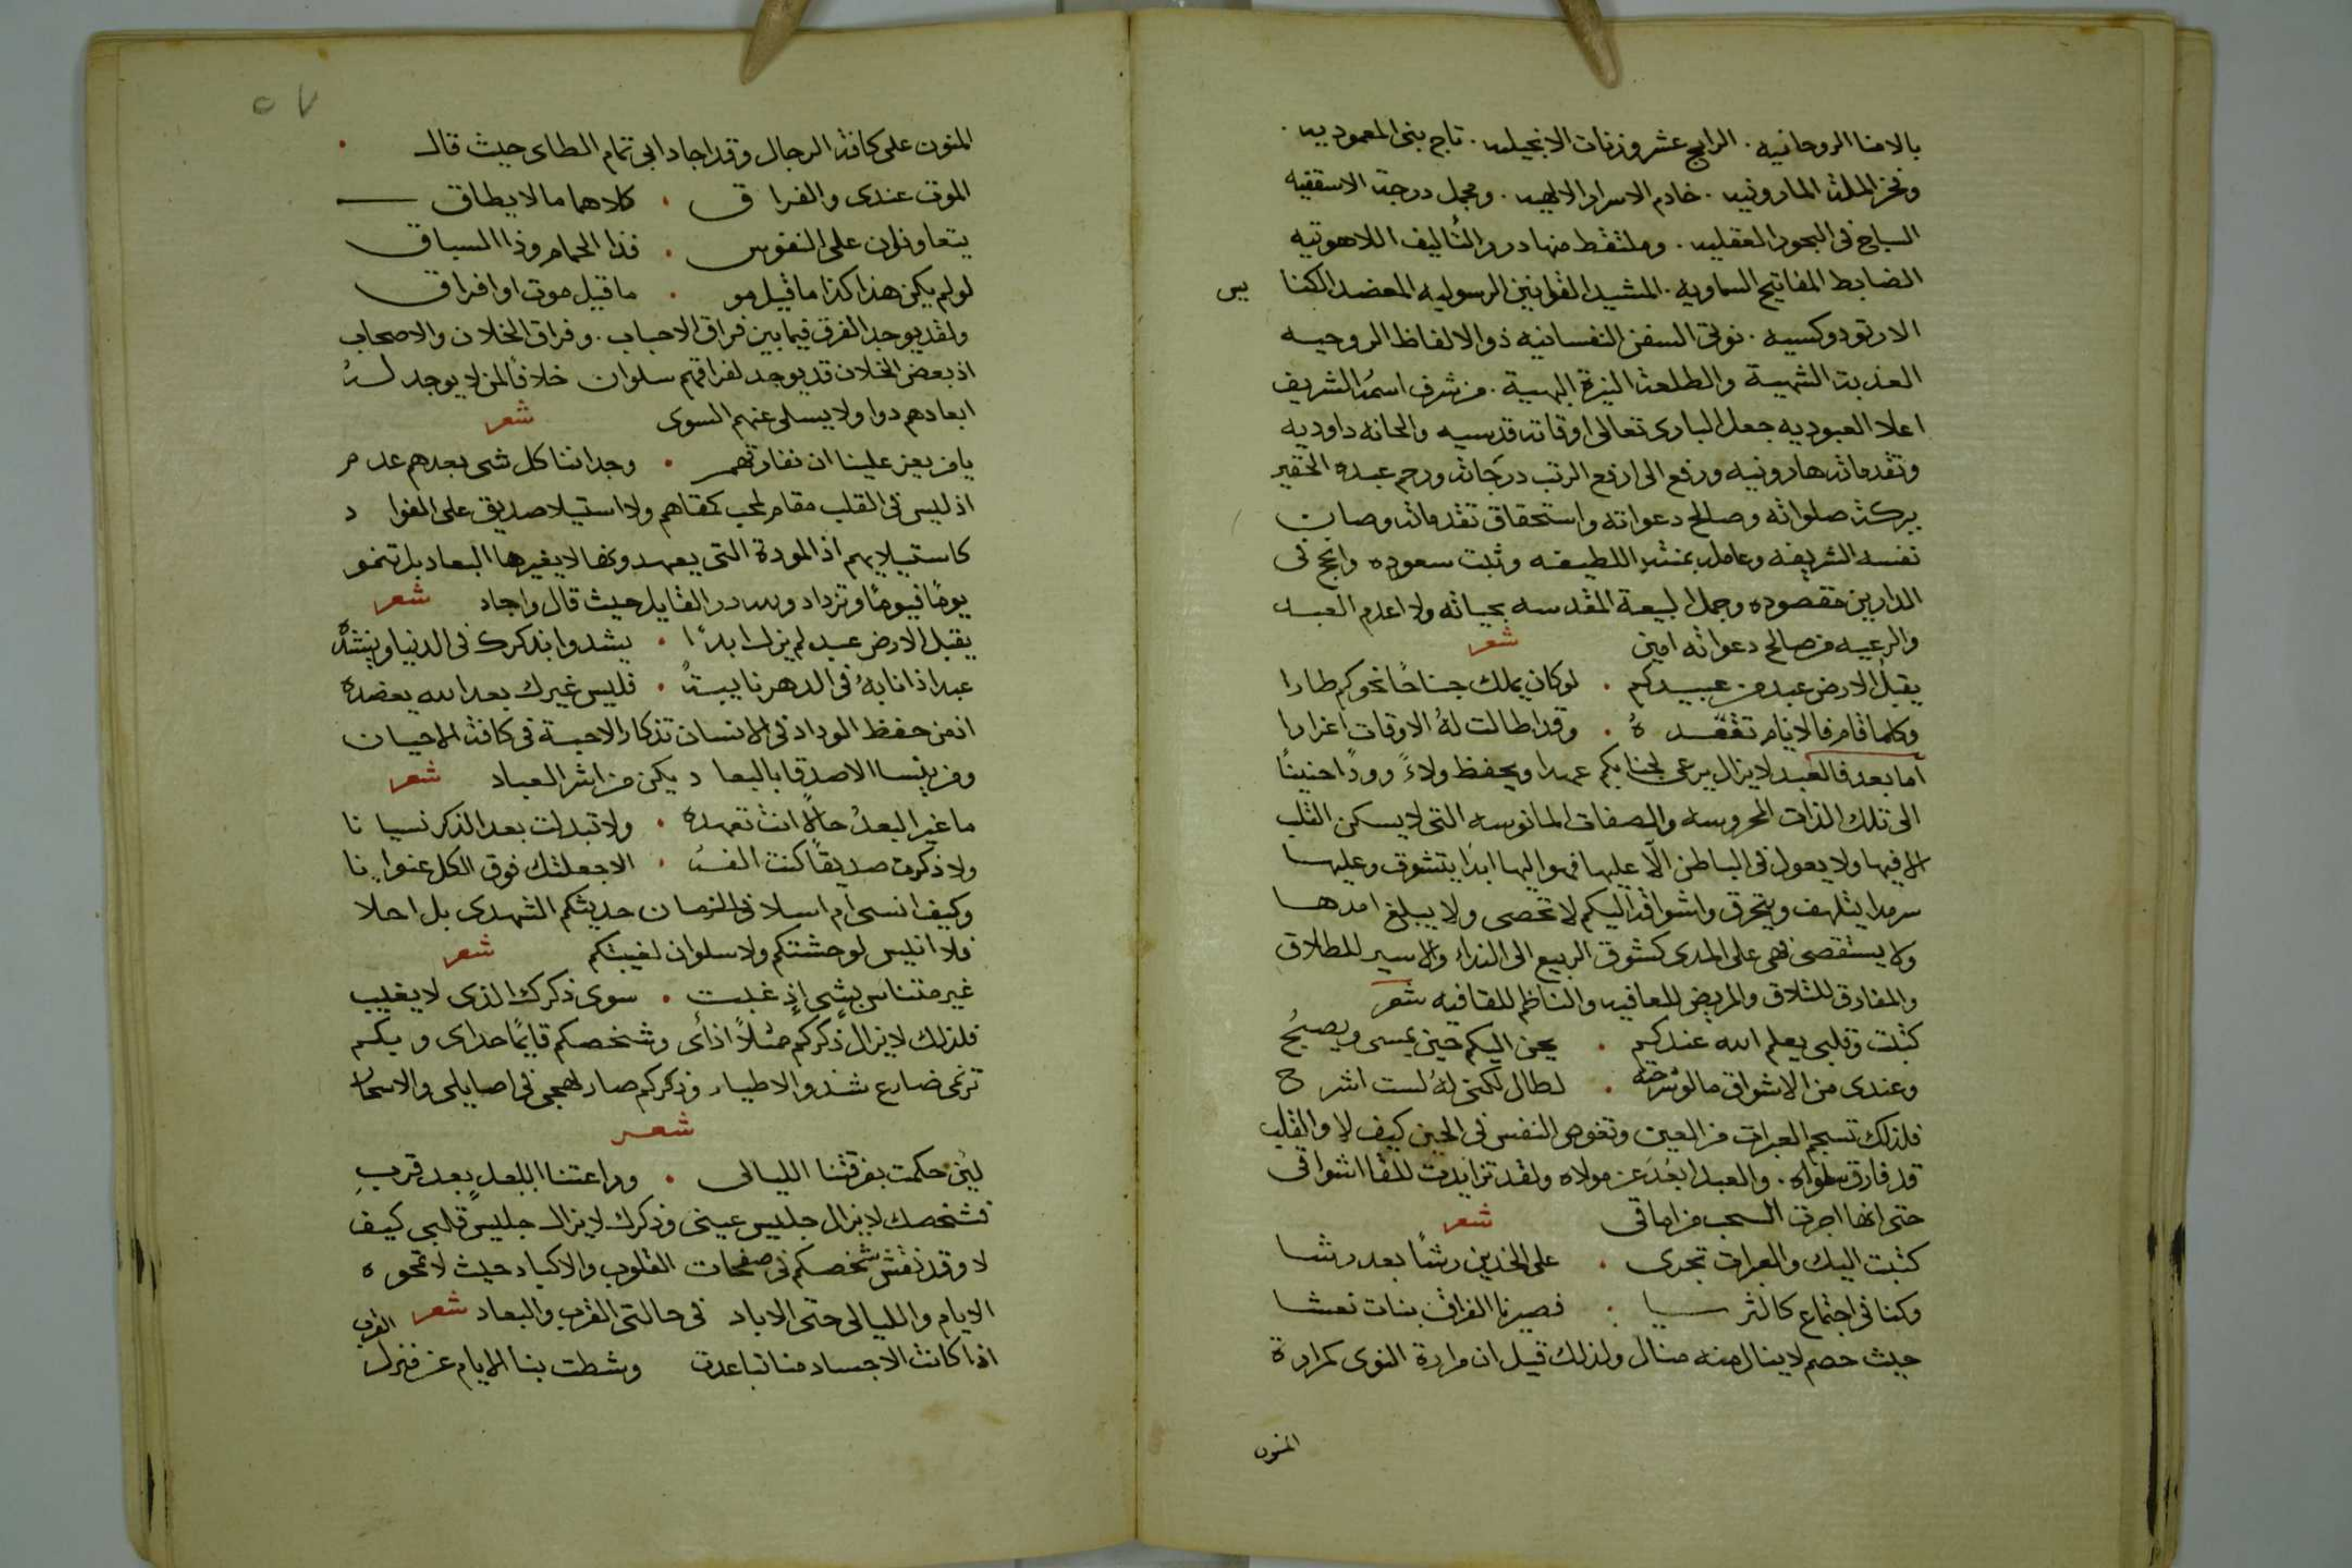 بالامنا الروحانيه . الرابح عشر وزنات الانجيليه . تاج بنى المعموديه .
وفخر الملة المارونيه . خادم الاسرار الالهيه . ومجمل درجة الاسقفيه
السابح فى البحور العقليه . وملتقط منها درر التأليف اللاهوتيه
الضابط المفاتيح السماويه . المشيد القوانين الرسوليه المعضد الكنا يس
الارتودوكسيه . نوتى السفن النفسانيه ذو الالفاظ الروحيه
العذبة الشهية والطلعة النيرة البهية . من شرف اسمه الشريف
اعلا العبوديه جعل البارى تعالى اوقاته قدسيه والحانه داوديه
وتقدماته هارونيه ورفع الى ارفع الرتب درجاته ورحم عبده الحقير
ببركة صلواته وصالح دعواته واستحقاق تقدماته وصان
نفسه الشريفه وعامله بمنته اللطيفه وثبت سعوده وانجح فى
الدارين مقصوده وجمل البيعة المقدسه بحياته ولا اعدم العبد
والرعيه من صالح دعواته امين شعر
يقبل الارض عبد من عبيدكم . لو كان يملك جناحًا نحوكم طارا
وكلما قام فالانام تقعده . وقد اطالت له الاوقات اعذارا
اما بعد فالعبد لا يزال يرعى لجنابكم عهدا ويحفظ ولاءً وودًا حنينًا
الى تلك الذات المحروسه والصفات المانوسه التى لا يسكن القلب
الا فيها ولا يعول فى الباطن الّا عليها فهو اليها ابدًا يتشوق وعليها
سرمدا يتلهف ويتحرق واشواقه اليكم لا تحصى ولا يبلغ امدها
ولا يستقصى فهى على المدى كشوق الربيع الى النداء والاسير للطلاق
والمفارق للتلاق والمريض للعافيه والناظم للقافيه شعر
كتبت وقلبى يعلم الله عندكم . يحن اليكم حين يمسى ويصبحُ
وعندى من الاشواق ما لو شرحته . لطال لكنى لهُ لست اشرح
فلذلك تسجم العبرات من العين وتغوص النفس فى الحين كيف لا والقلب
قد فارق سلواه . والعبد ابعُدَ عن مولاه ولقد تزايدت للقا اشواقى
حتى انها اجرت السحب من اماقى شعر
كتبت اليك والعبرات تجرى . على الخدين رشًا بعد رشا
وكنا فى اجتماع كالثريا . فصيرنا الفراق بنات نعشا
حيث حصم لا ينال منه منال ولذلك قيل ان مرارة النوى كمرارة
المنون
٥٧
المنون على كافة الرجال وقد اجاد ابى تمام الطاى حيث قال .
الموت عندى والفراق . كلاهما ما لا يطاق
يتعاونان على النفوس . فذا الحمام وذا السباق
لو لم يكن هذا كذا ما قيل مو . ما قيل موت او افراق
ولقد يوجد الفرق فيما بين فراق الاحباب . وفراق الخلان والاصحاب
اذ بعض الخلان قد يوجد لفراقهم سلوان خلافًا لمن لا يوجد لسهُ
ابعادهم دوا ولا يسلى عنهم السوى شعر
يا من يعز علينا ان نفارقهم . وجداننا كل شى بعدهم عدم
اذ ليس فى القلب مقام لمحب كمقاهم ولا استيلا صديق على الفواد
كاستيلايهم اذ المودة التى يعهدونها لا يغيرها البعاد بل تنمو
يومًا فيومًا وتزداد ولله در القايل حيث قال واجاد شعر
يقبل الارض عبد لم يزل ابدًا . يشدوا بذكرك فى الدنيا وينشدُه
عبدا اذا نابهُ فى الدهر نايبةً . فليس غيرك بعد الله يعضده
ان من حفظ الوداد فى الانسان تذكار الاحبة فى كافة الاحيان
ومن ينسا الاصدقا بالبعاد يكن من اشر العباد شعر
ما غير البعدُ حالًا انت تعهده . ولا تبدلت بعد الذكر نسيانا
ولا ذكرت صديقًا كنت الفهُ . الا جعلتك فوق الكل عنوانا
وكيف انسى ام اسلا فى الزمان حديثكم الشهدى بل احلا
فلا انيس لوحشتكم ولا سلوان لغيبتكم شعر
غير متناسٍ بشىٍ اذ غبت . سوى ذكرك الذى لا يغيب
فلذلك لا يزال ذكركم مثلًا اذاى وشخصكم قايمًا حداى ويكم
ترنمى ضارع شدو الاطيار وذكركم صار لهجى فى اصايلى والاسحار
شعر
ليُن حكمت بفرقتنا الليالى . وراعتنا البعد بعد قربِ
فشخصك لا يزال جليس عينى وذكرك لا يزال جليس قلبى كيف
لا وقد نقش شخصكم فى صفحات القلوب والاكباد حيث لا تمحوه
الايام والليالى حتى الاباد فى حالتى القرب والبعاد شعر
اذا كانت الاجساد منا تباعدت وشطت بنا الايام عن منزل القرب